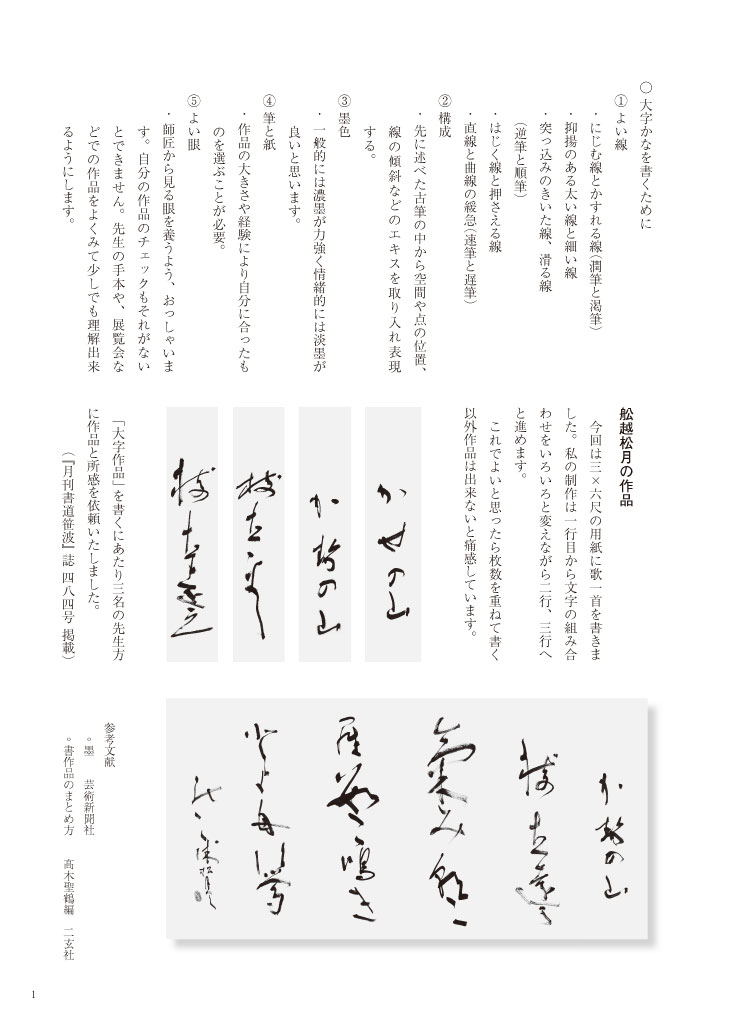 ○ 大字かなを書くために
① よい線
・にじむ線とかすれる線（潤筆と渇筆）
・抑揚のある太い線と細い線
・突っ込みのきいた線、滑る線
（逆筆と順筆）
・はじく線と押さえる線
・直線と曲線の緩急（速筆と遅筆）
② 構成
・先に述べた古筆の中から空間や点の位置、
線の傾斜などのエキスを取り入れ表現
する。
③ 墨色
・一般的には濃墨が力強く情緒的には淡墨が
良いと思います。
④ 筆と紙
・作品の大きさや経験により自分に合ったも
のを選ぶことが必要。
⑤ よい眼
・師匠から見る眼を養うよう、おっしゃいま
す。自分の作品のチェックもそれがない
とできません。先生の手本や、展覧会な
どでの作品をよくみて少しでも理解出来
るようにします。
舩越松月の作品
今回は三×六尺の用紙に歌一首を書きま
した。私の制作は一行目から文字の組み合
わせをいろいろと変えながら二行、三行へ
と進めます。
これでよいと思ったら枚数を重ねて書く
以外作品は出来ないと痛感しています。
かせの山
か勢の山
「大字作品」を書くにあたり三名の先生方
に作品と所感を依頼いたしました。
（『月刊書道笹波』誌 四八四号 掲載）
か勢の山
参考文献
。墨 芸術新聞社
。書作品のまとめ方 高木聖鶴編 二玄社
1